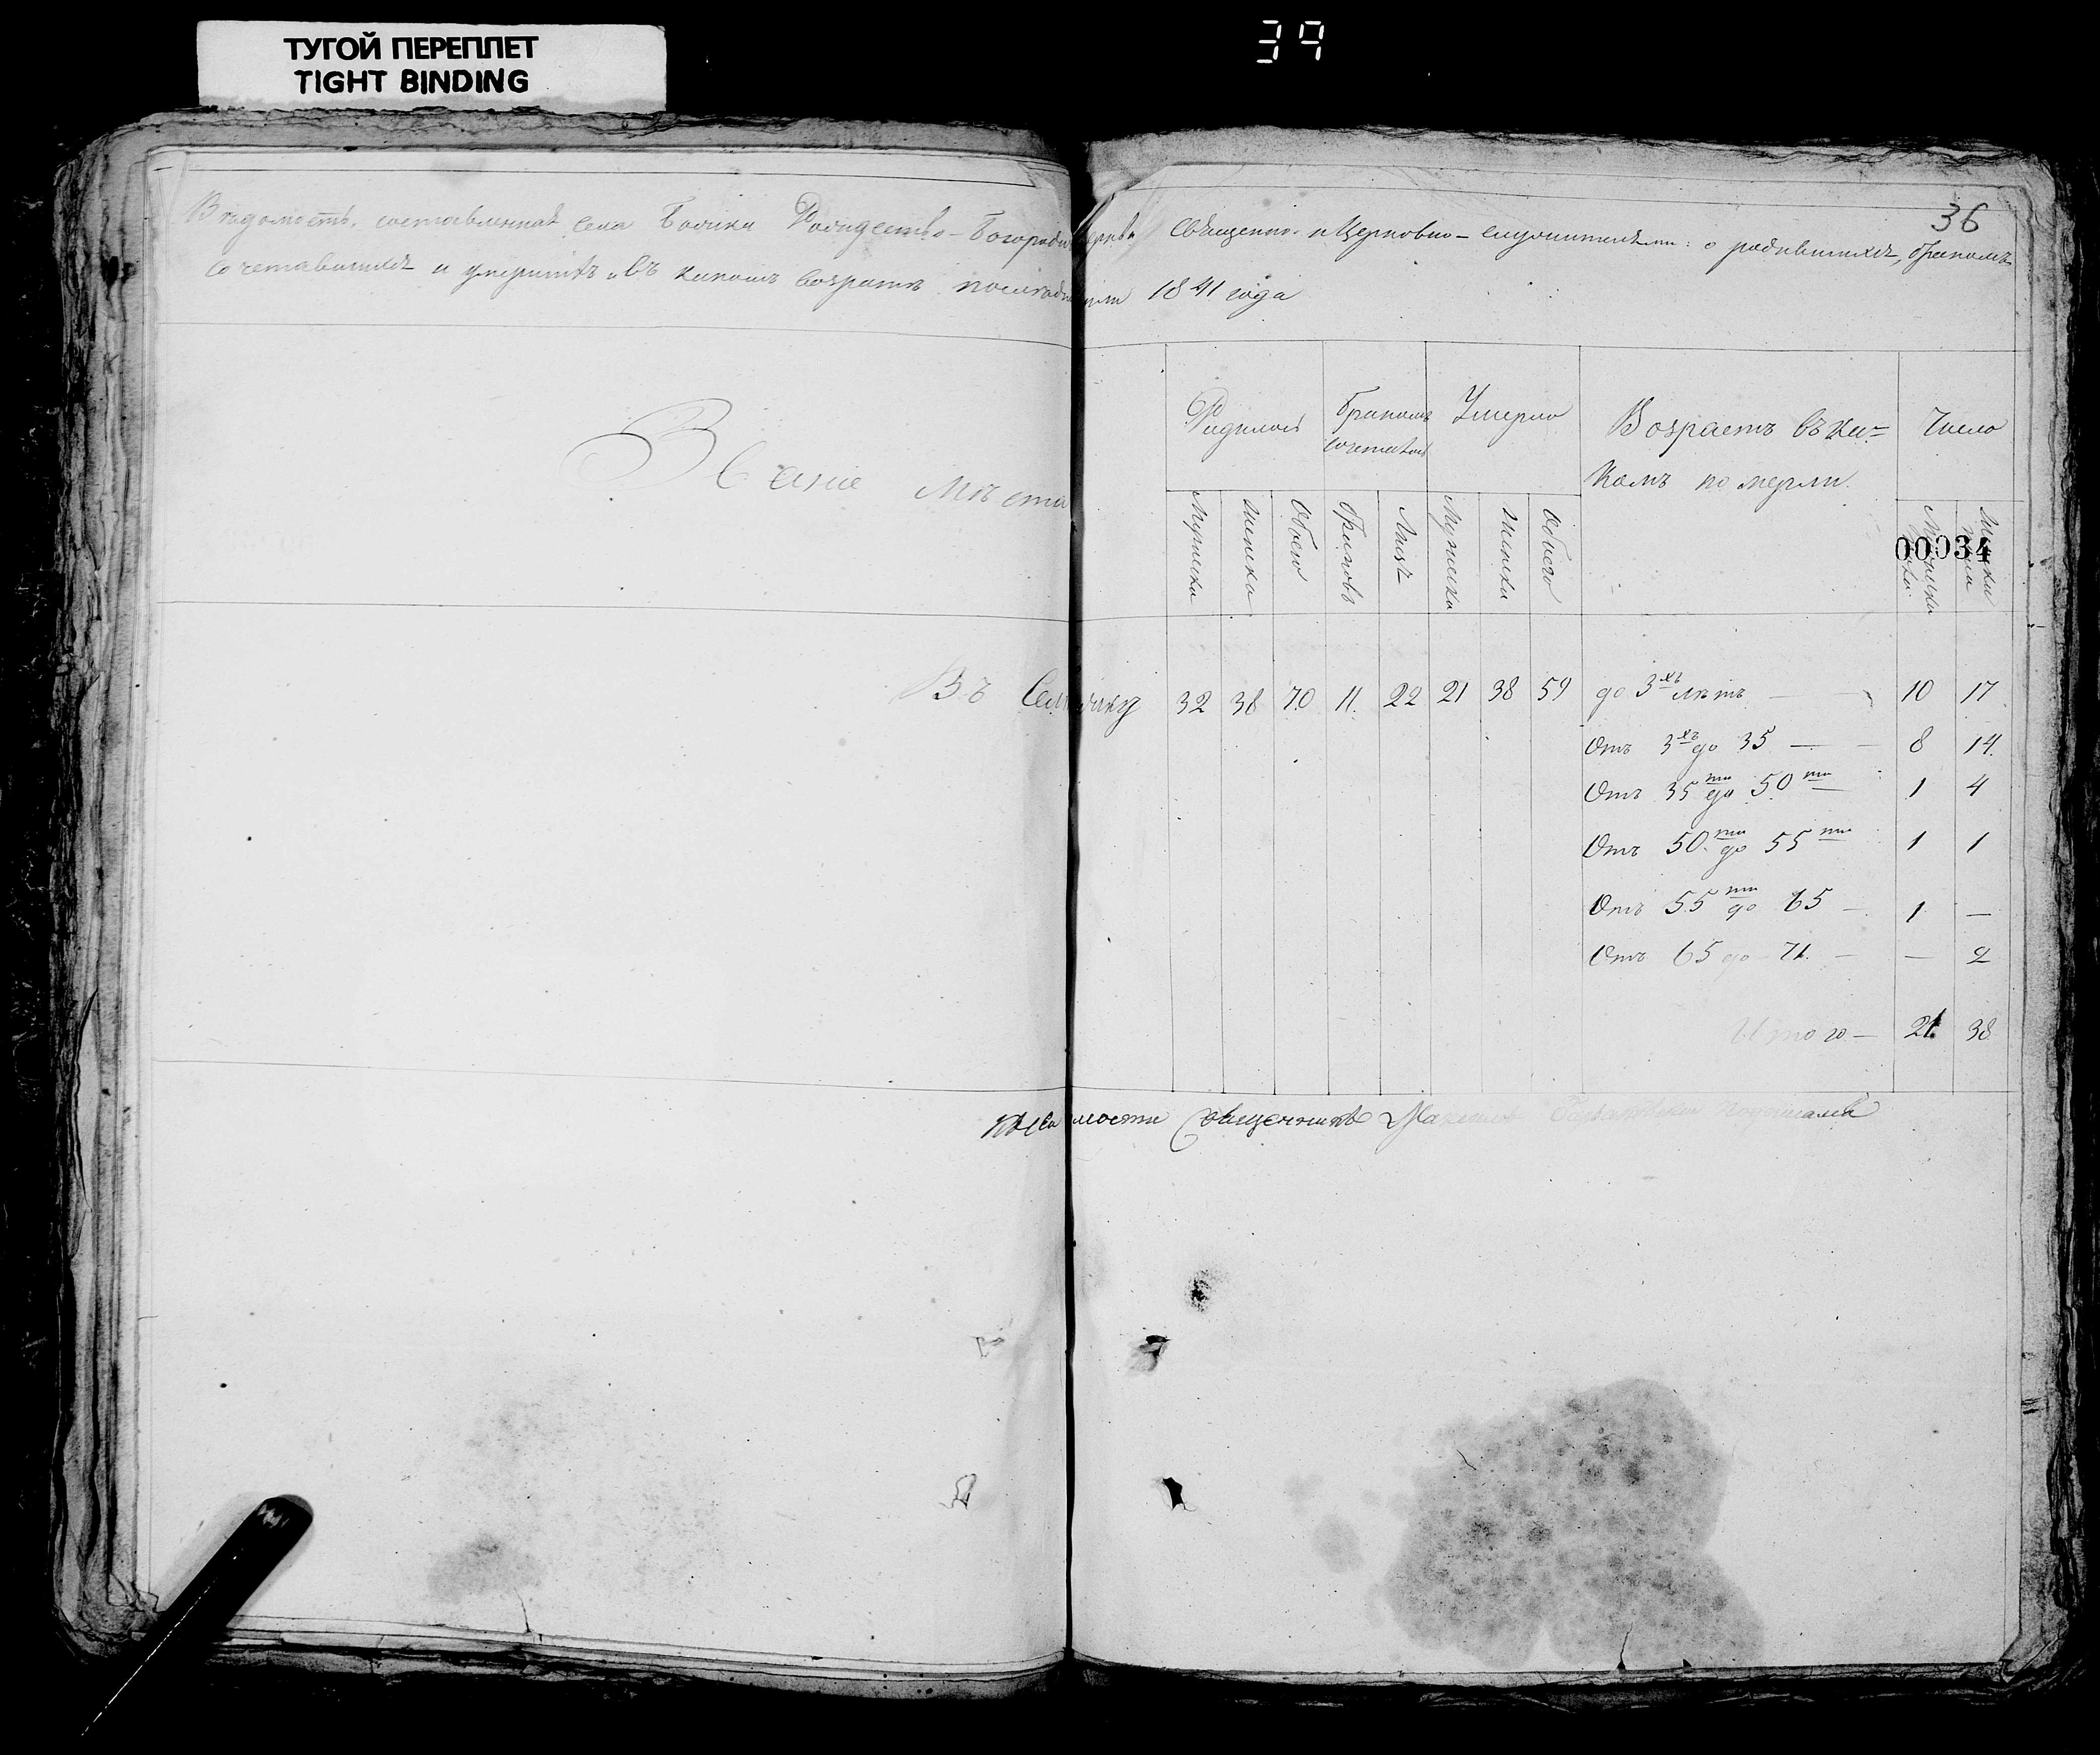 ТУГОЙ ПЕРЕПЛЕТ
TIGHT BINDING
39
36
Ведомость, составленная села Рождество-Богороди церкви Священно-и Церковно-служителями: о родившихся, бракомъ
сочетавшихся и умершихъ, въ какомъ возрасте последни 1841 года
Звание места
Родилось
Бракомъ сочетались
Умерло
Возрастъ въ ка=
комъ померли.
Число
Мужеска
Женска
Обоего
Браковъ
Лицъ
Мужеска
Женска
Обоего
00034
Въ 32 38 70 11. 22 21 38 59 до 3хъ летъ — 10 17
Отъ 3хъ до 35 — 8 14.
Отъ 35ти до 50ти — 1 4
Отъ 50ти до 55ти 1 1
Отъ 55ти до 65 — 1 —
Отъ 65 до 71. — — 2
Итого — 21. 38
Священникъ